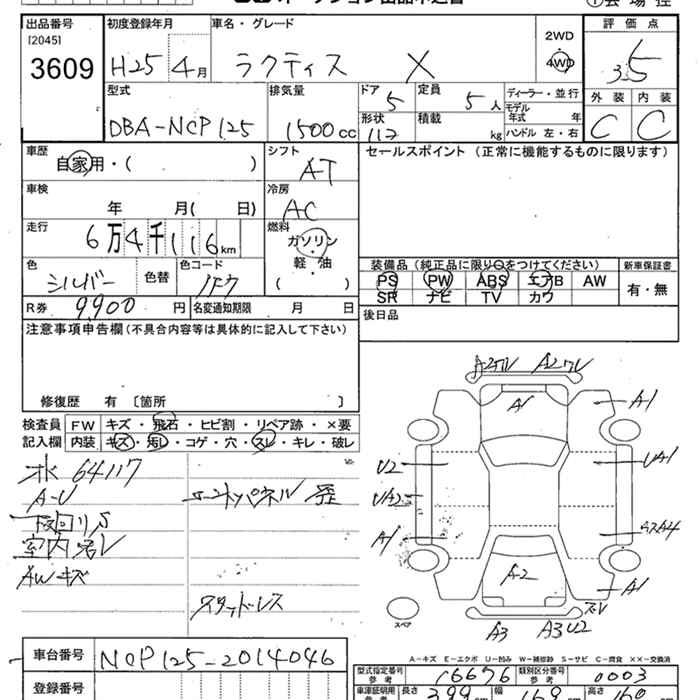 出品番号 初度登録年月 車名・グレード 2WD 評価点
[2045]
3609 H25 4月 ラクティス X 4WD 3.5
型式 排気量 ドア 5 定員 5人 ディーラー・並行 外装 内装
モデル年式 年
DBA-NCP125 1500cc 形状 積載 kg ハンドル 左・右 C C
車歴 シフト セールスポイント (正常に機能するものに限ります)
自家用・( ) AT
車検 冷房
年 月( 日) AC
走行 燃料
6万4千116km ガソリン
軽・油
色 色替 色コード ( )
シルバー 1F7
装備品 (純正品に限り○をつけてください) 新車保証書
PS PW ABS エアB AW 有・無
SR ナビ TV カワ
R券 9900円 名変通知期限 月 日 後日品
注意事項申告欄(不具合内容等は具体的に記入して下さい)
修復歴 有 〔箇所 〕
検査員 FW キズ・飛石・ヒビ割・リペア跡・×要
記入欄 内装 キズ・汚レ・コゲ・穴・スレ・キレ・破レ
水 64117
A-U
下回りS
室内汚レ
AWキズ
スタッドレス
A2 A2
A1 A1
U2 UA1
UA2
A1
A2 A1
A3 A3U2
スペア
A-キズ E-エクボ U-凹み W-補修跡 S-サビ C-腐食 ××-交換済
車台番号 NCP125-2014046
登録番号
型式指定番号 参考 16676 類別区分番号 参考 0003
車庫証明用 参考 長さ 399cm 幅 169cm 高さ 160cm